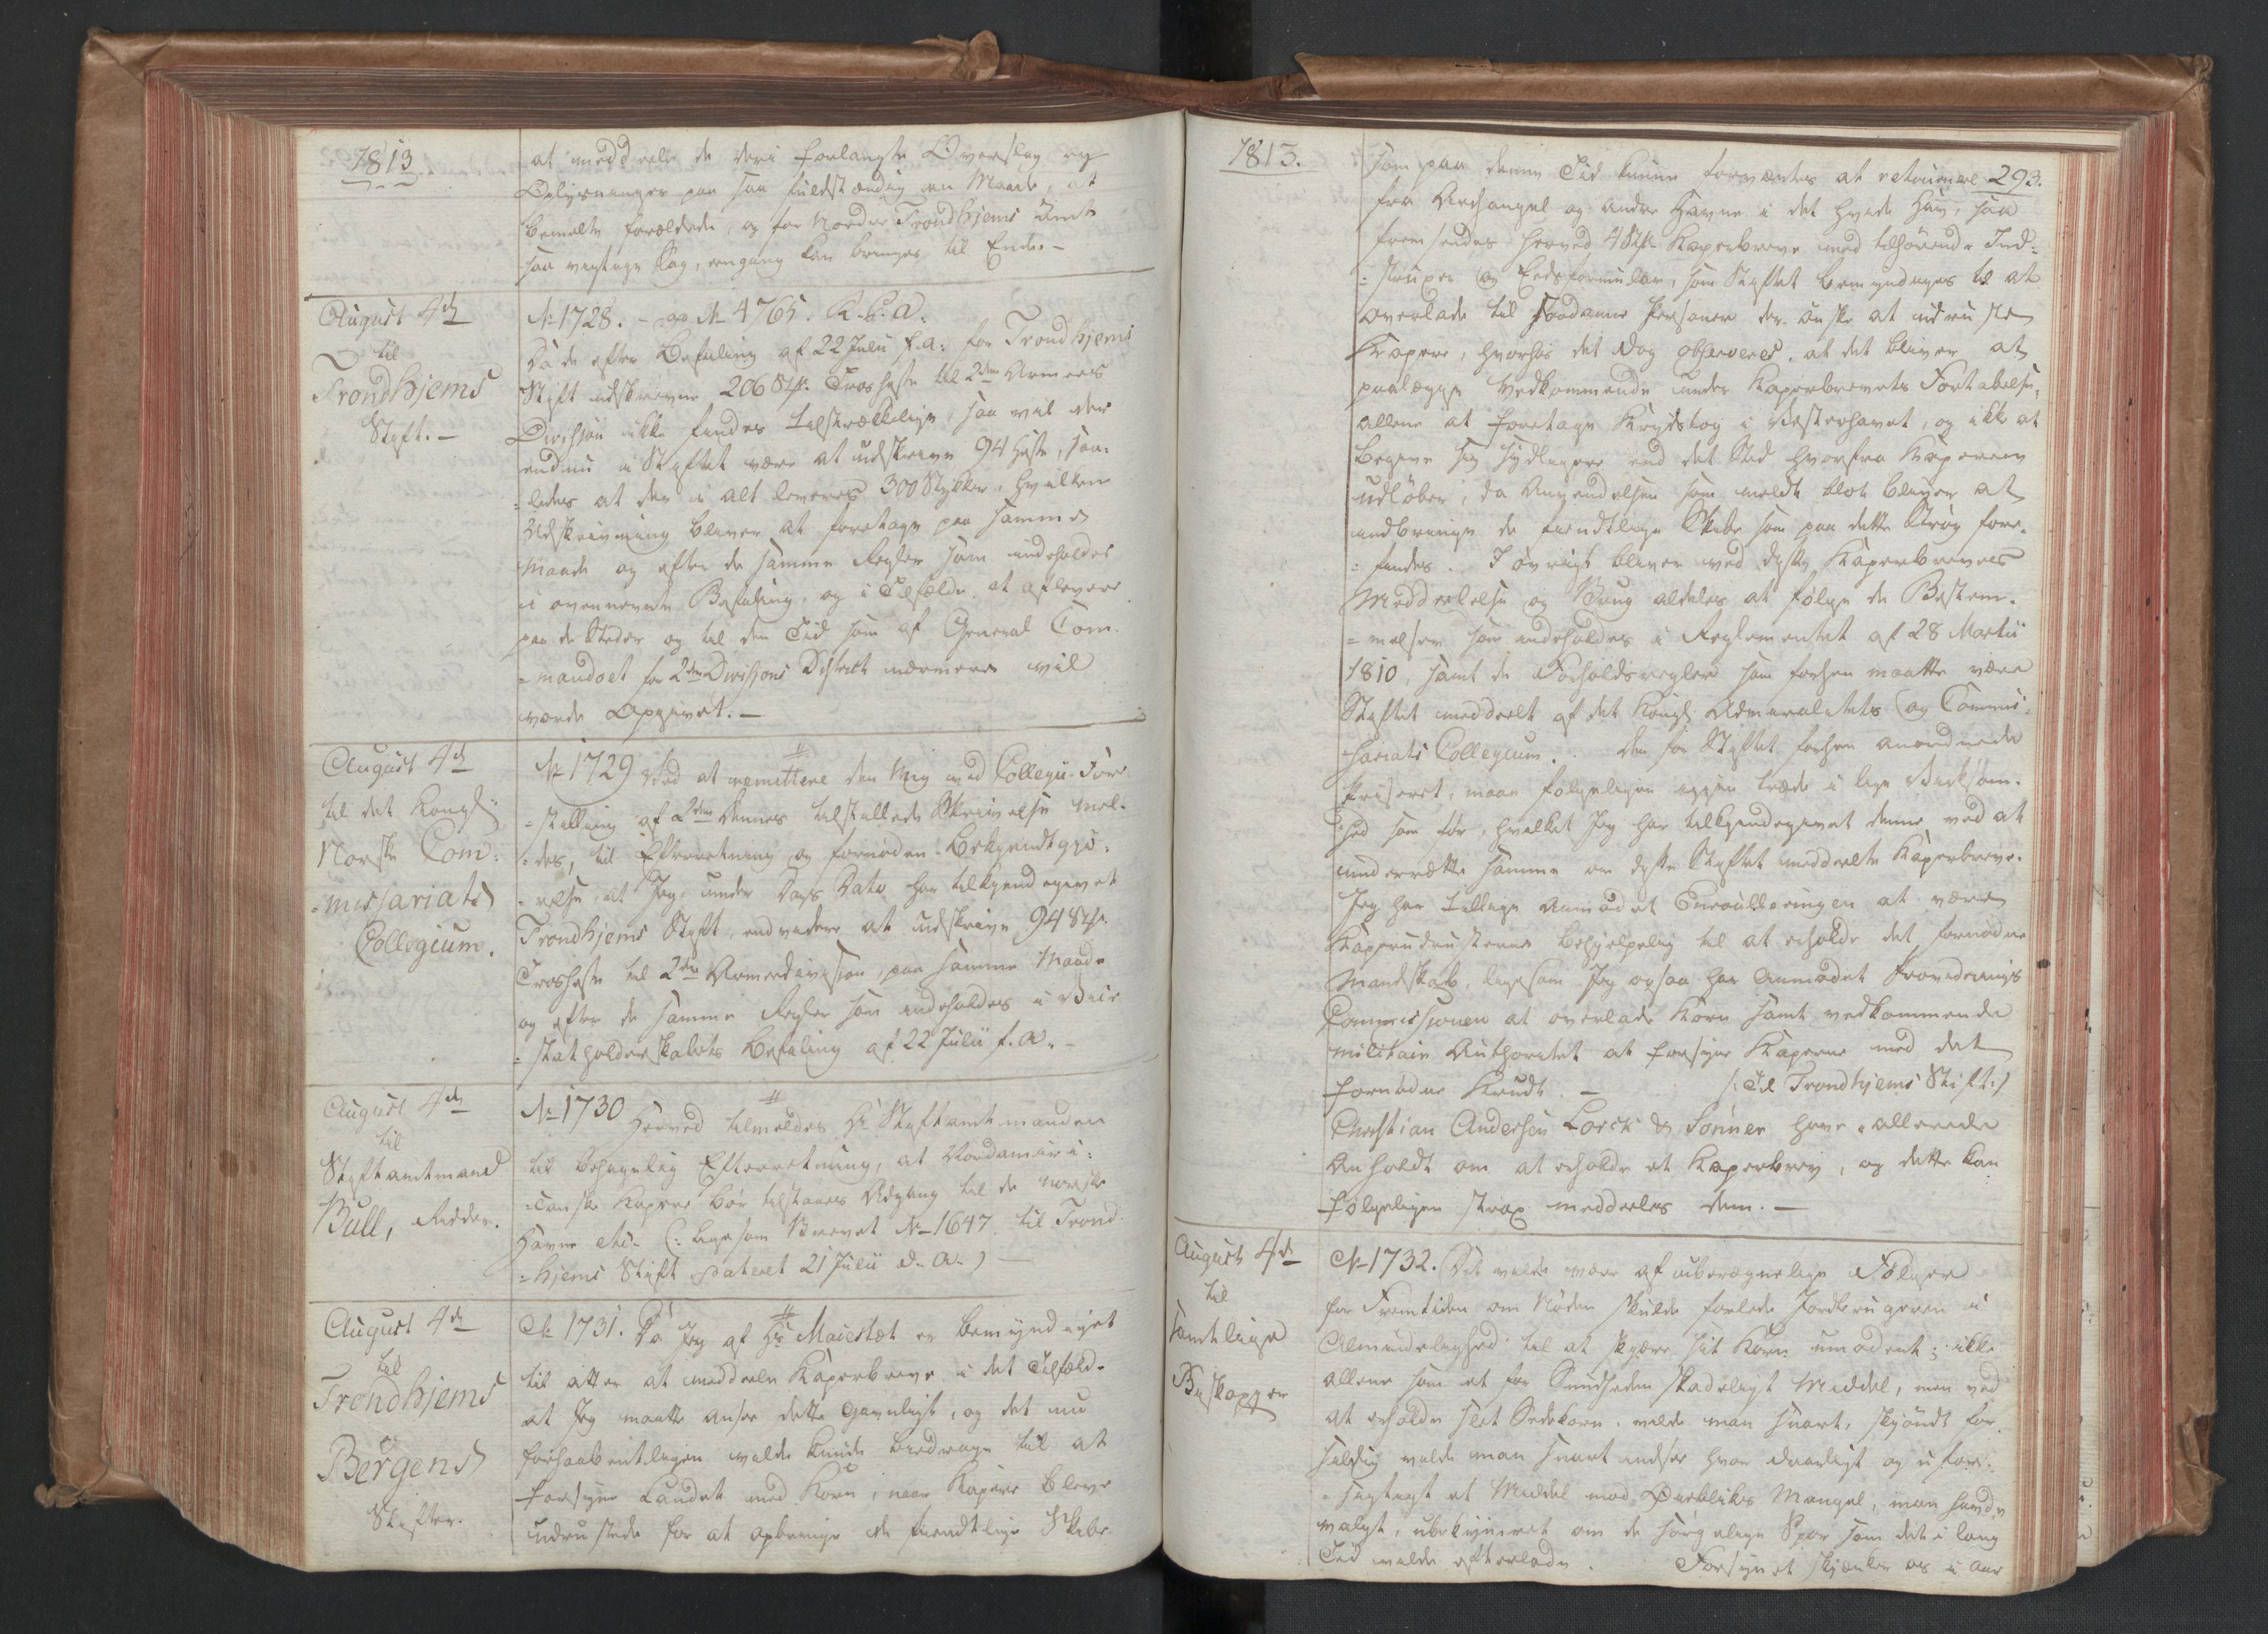 1813
at meddeele de deri forlangte Overslag og
Oplysninger paa saa fuldstændig en Maade, at
bemelte forældede, og for Nordre Trondhjems Amt
saa vigtige Sag, eengang kan bringes til Ende. -
August 4de
til
Trondhjems
Stift. -
No 1728. - No 4765. K. C. a.
Da de efter Befaling af 22 Julii f. a. for Trondhjems
Stift udskrevne 206 Stk. Trosheste til 2den Armees
Division ikke findes tilstrækkelige, saa vil der
endnu i Stiftet være at udskrive 94 Heste, saa-
=ledes at der i alt leveres 300 Stykker, hvilken
Udskrivning bliver at foretage paa samme
Maade og efter de samme Regler som indeholdes
i ovennevnte Befaling, og i Tilfælde at aflevere
paa de Steder og til den Tid som af General Com-
=mandoet for 2den Divisions District nærmere vil
vorde Opgivet. -
August 4de
til det Kongl:
Norske Com=
=missariats
Collegium.
No 1729 Ved at remittere den Mig med Collegii Fore
=stilling af 2den Dennes tilstillede Skrivelse mel-
=des, til Efterretning og fornøden Bekjendtgjø=
=relse, at Jeg under Dags Dato har tilkjendegivet
Trondhjems Stift, endvidere at udskrive 94 Stk.
Trosheste til 2den Armeedivision, paa samme Maade
og efter de samme Regler som indeholdes i Vice
=statholderskabets Befaling af 22 Julii f. a. -
August 4de
til
Stiftamtmand
Bull, Ridder.
No 1730 Herved tilmeldes Hr Stiftamtmanden
til behagelig Efterretning, at Nordameri=
=canske Kapere bør tilstaaes Adgang til de norske
Havne etc. (: ligesom Brevet No 1647 til Trond
=hjems Stift dateret 21 Julii d. A. ) -
August 4de
til
Trondhjems
og
Bergens
Stifter.
No 1731. Da Jeg af Hs Maiestæt er bemyndiget
til atter at meddeele Kaperbreve i det Tilfælde
at Jeg maatte ansee dette gavnligt, og det nu
forhaabentligen vilde kunde bidrage til at
forsyne Landet med Korn, naar Kapere bleve
udrustede for at opbringe de fiendtlige Skibe
1813.
293.
som paa denne Tid kunne forventes at retournere
fra Archangel og andre Havne i det hvide Hav, saa
fremsendes herved 4 Stk Kaperbreve med tilhørende Ind=
=struxer og Eedsformular, som Stiftet bemyndiges til at
overlade til saadanne Personer der ønske at udruste
Kapere, hvorhos det dog observeres, at det bliver at
paalægge Vedkommende under Kaperbrevets Fortabelse,
allene at foretage Krydstog i Vesterhavet, og ikke at
begive sig sydligere end det Sted hvorfra Kaperen
udløber, da Anvendelsen som meldt blot bliver at
indbringe de fiendtlige Skibe som paa dette Strøg fore-
=findes. I øvrigt bliver ved disse Kaperbreves
Meddeelelse og Brug aldeles at følge de Bestem-
=melser som indeholdes i Reglementet af 28 Martii
1810, samt de Forholdsregler som forhen maatte være
Stiftet meddeelt af det Kongl: Admiralitets og Commis=
=sariats Collegium. Den for Stiftet forhen anordnede
Priseret, maae følgeligen igjen træde i lige Virksom-
hed som før, hvilket Jeg har tilkjendegivet denne ved at
underrette samme om disse Stiftet meddeelte Kaperbreve.
Jeg har tillige anmodet Enroulleringen at være
Kaperudrusterne behjelpelig til at erholde det fornødne
Mandskab, ligesom Jeg ogsaa har anmodet Provederings
Commissionen at overlade Korn samt vedkommende
militair Authoritet at forsyne Kaperne med det
fornødne Krudt. - (: Til Trondhjems Stift :)
Christian Andersen Lorck & Sønner have allerede
Anholdt om at erholde et Kaperbrev, og dette kan
følgeligen strax meddeeles dem. -
August 4de
til
samtlige
Biskopper
No 1732. Det vilde være af uberegnelige Følger
for Fremtiden om Nøden skulde forlede Jordbrugeren i
Almindelighed til at skjære sit Korn umodent; ikke
allene som et for Sundheden skadeligt Middel, men ved
at erholde slet Sædekorn. vilde man snart, skjøndt for
sildig vilde man snart indsee hvor daarligt og ufor-
=sigtigt et Middel mod Øieblikets Mangel, man havde
valgt, ubekymret om de sørgelige Spor som det i lang
Tid vilde efterlade. Forsynet skjenker os i Aar